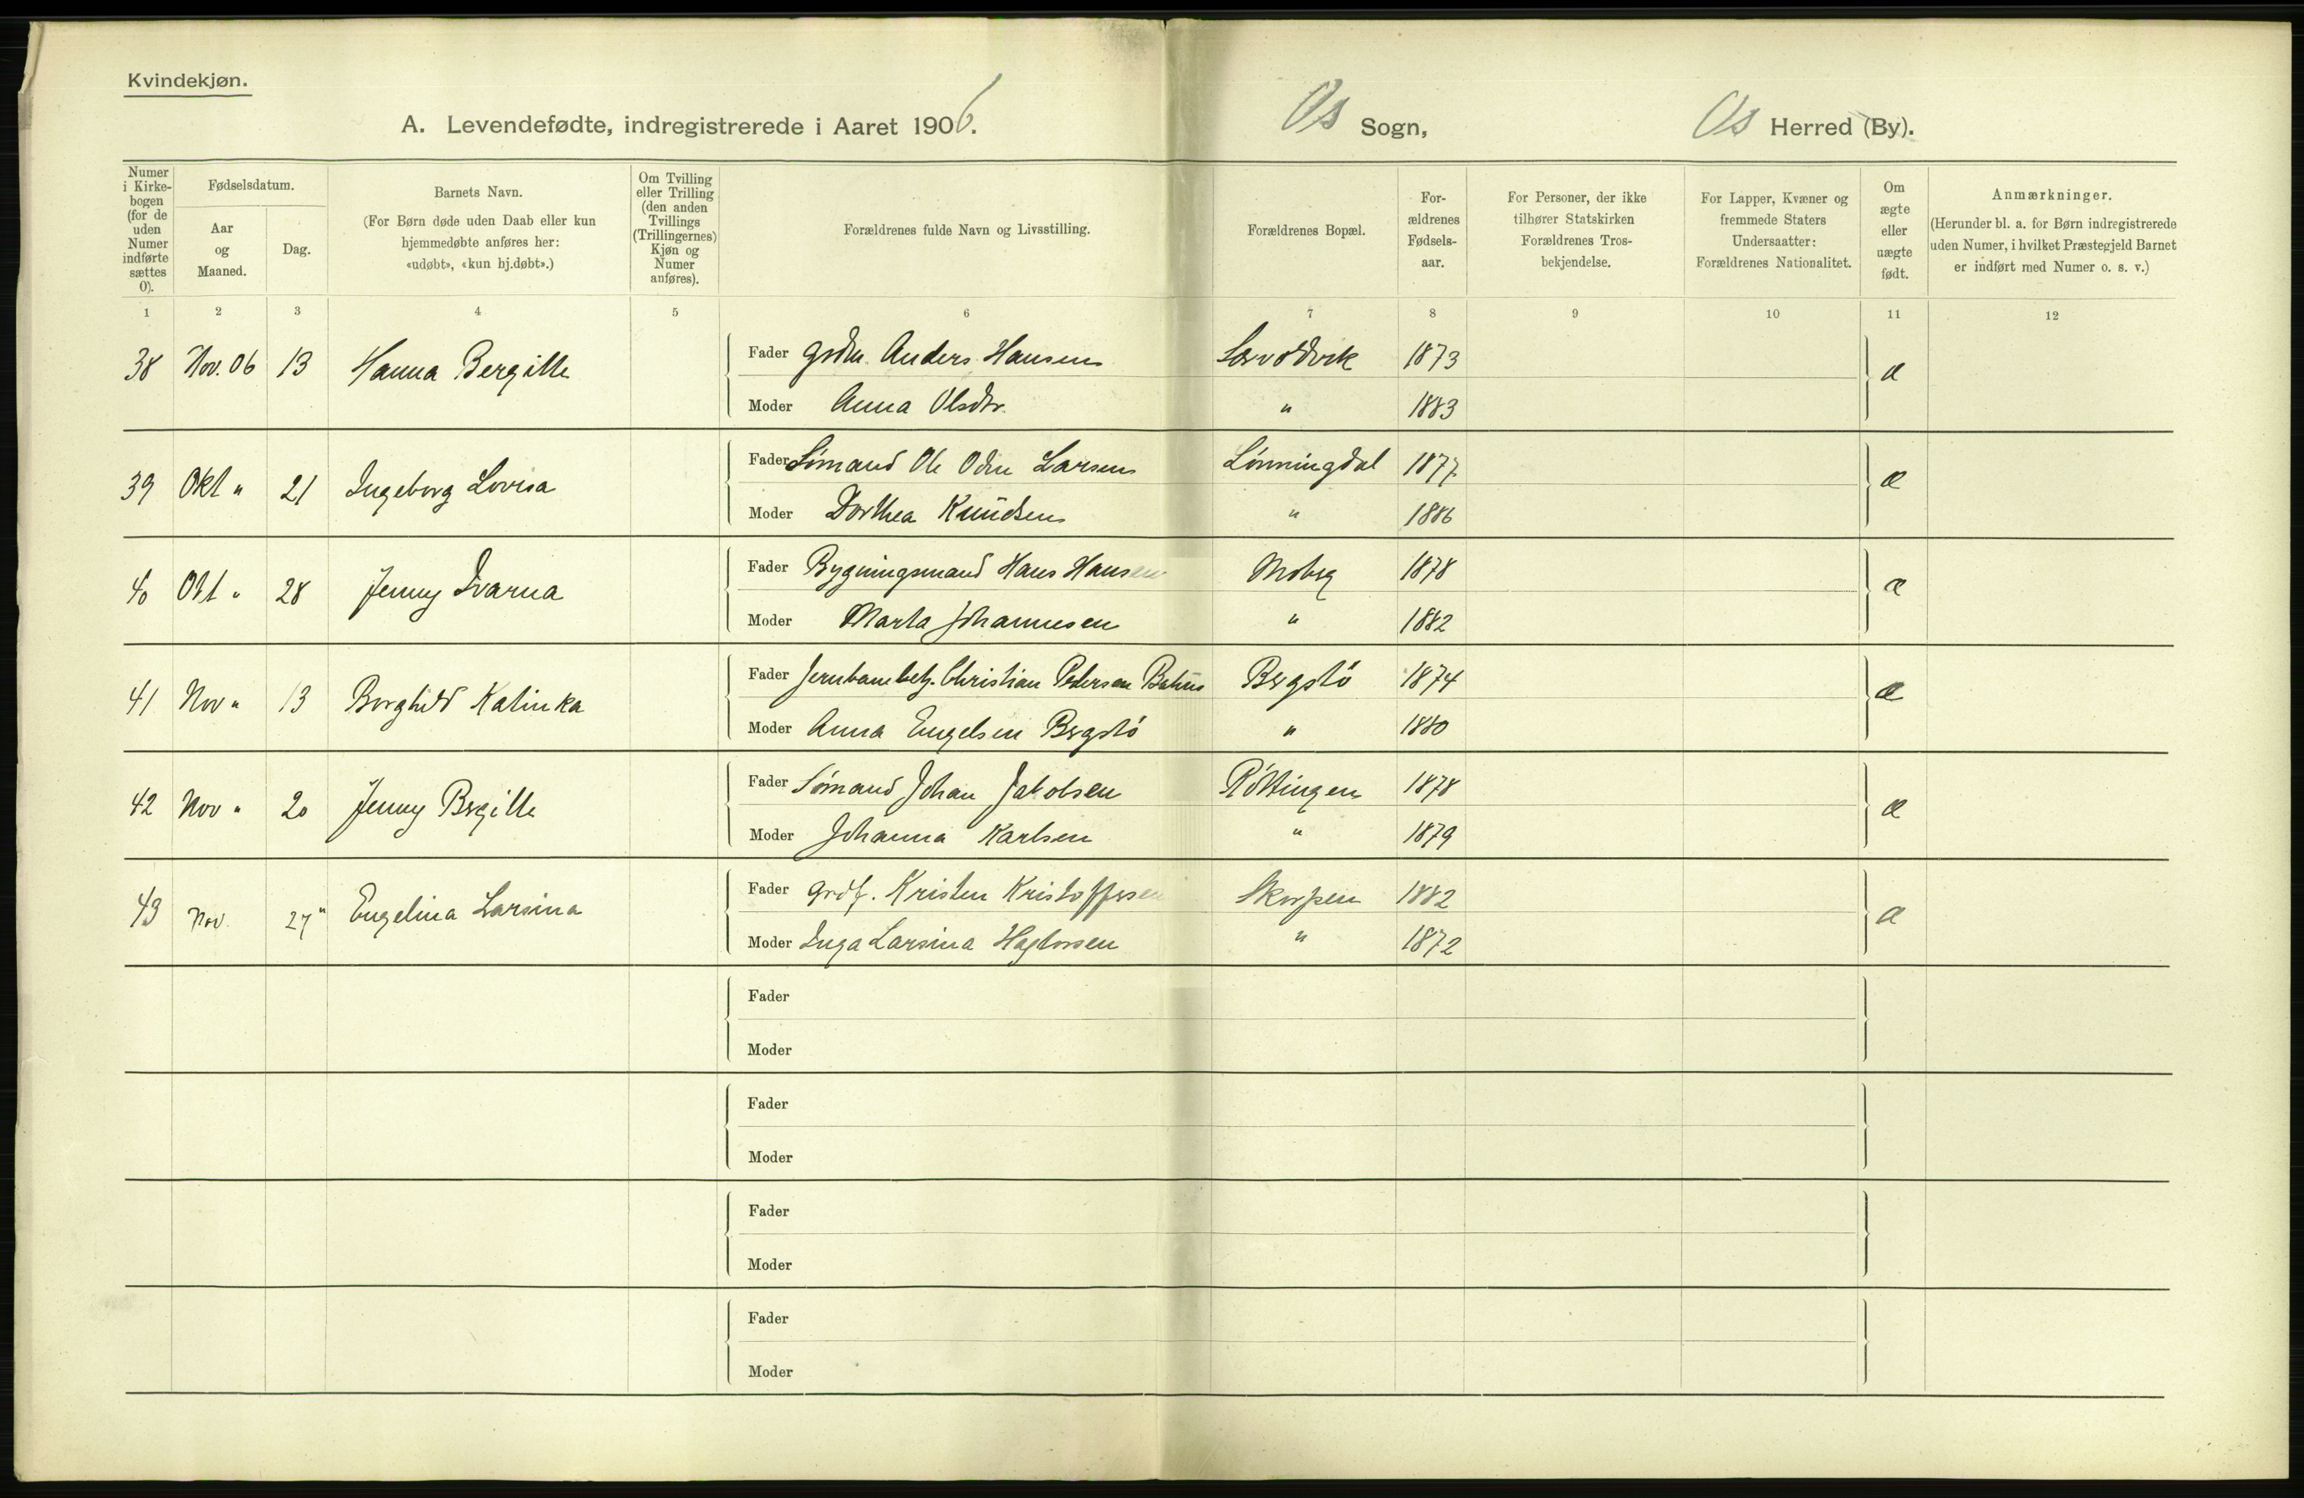 Kvindekjøn.
A. Levendefødte, indregistrerede i Aaret 1906.
Os Sogn,
Os Herred (By).
Numer i Kirkebogen (for de uden Numer indførte sættes 0).
Fødselsdatum.
Aar og Maaned.
Dag.
Barnets Navn.
(For Børn døde uden Daab eller kun hjemmedøbte anføres her: «udøbt», «kun hj.døbt».)
Om Tvilling eller Trilling (den anden Tvillings (Trillingernes) Kjøn og Numer anføres).
Forældrenes fulde Navn og Livsstilling.
Forældrenes Bopæl.
Forældrenes Fødselsaar.
For Personer, der ikke tilhører Statskirken Forældrenes Trosbekjendelse.
For Lapper, Kvæner og fremmede Staters Undersaatter: Forældrenes Nationalitet.
Om ægte eller uægte født.
Anmærkninger.
(Herunder bl. a. for Børn indregistrerede uden Numer, i hvilket Præstegjeld Barnet er indført med Numer o. s. v.)
1 2 3 4 5 6 7 8 9 10 11 12
38 Nov. 06 13 Hanna Bergitte Fader Grdm. Anders Hansen 1873 æ
Moder Anna Olsdtr. " 1883
39 Okt " 21 Ingeborg Lovisa Fader Sömand Ole Odin Larsen Lönningdal 1877 æ
Moder Dorthea Knudsen " 1886
40 Okt " 28 Jenny Ivarna Fader Bygningsmand Hans Hansen Moberg 1878 æ
Moder Marta Johannesen " 1882
41 Nov " 13 Borghild Katinka Fader Jernbanebetj. Christian Pedersen Bergstö 1874 æ
Moder Anna Engelsen Bergstö " 1880
42 Nov " 20 Jenny Bergitte Fader Sömand Johan Jakobsen Röttingen 1878 æ
Moder Johanna Karlsen " 1879
43 Nov. 27 " Engelina Larsina Fader Kristen Kristoffersen Skorpen 1882 æ
Moder Inga Larsina " 1872
Fader
Moder
Fader
Moder
Fader
Moder
Fader
Moder